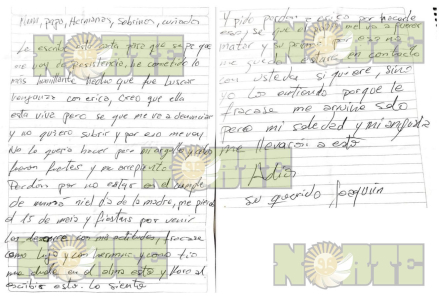 Mami, papá, Hermanos, sobrinos, cuñados
Le escribo esta carta para que sepa que
me voy de Resistencia, he cometido lo
más humillante hecho que fue buscar
venganza con erica, creo que ella
esta viva pero se que me va a denunciar
y no quiero sufrir y por eso me voy
No lo quería hacer pero mi orgullo y odio
fueron fuertes y me arrepiento
Perdón por no estar en el cumple
de mamá ni el día de la madre, me pierdo
el 15 de y fiestas por venir
Los con mis actitudes, fracase
como hijo y como hermano y como tío
me duele en el alma esto y lloro al
escribir esto. Lo siento
Y pido perdon a erica por hacerle
eso, se que el me va a querer
matar y su
me quedan estare en contacto
con ustedes si quieren, sino
yo los entiendo porque le
fracase me arruine solo
pero mi soledad y mi angustia
me llevaron a esto
Adios
su querido Joaquin
NORTE
NORTE
NORTE
NORTE
NORTE
NORTE